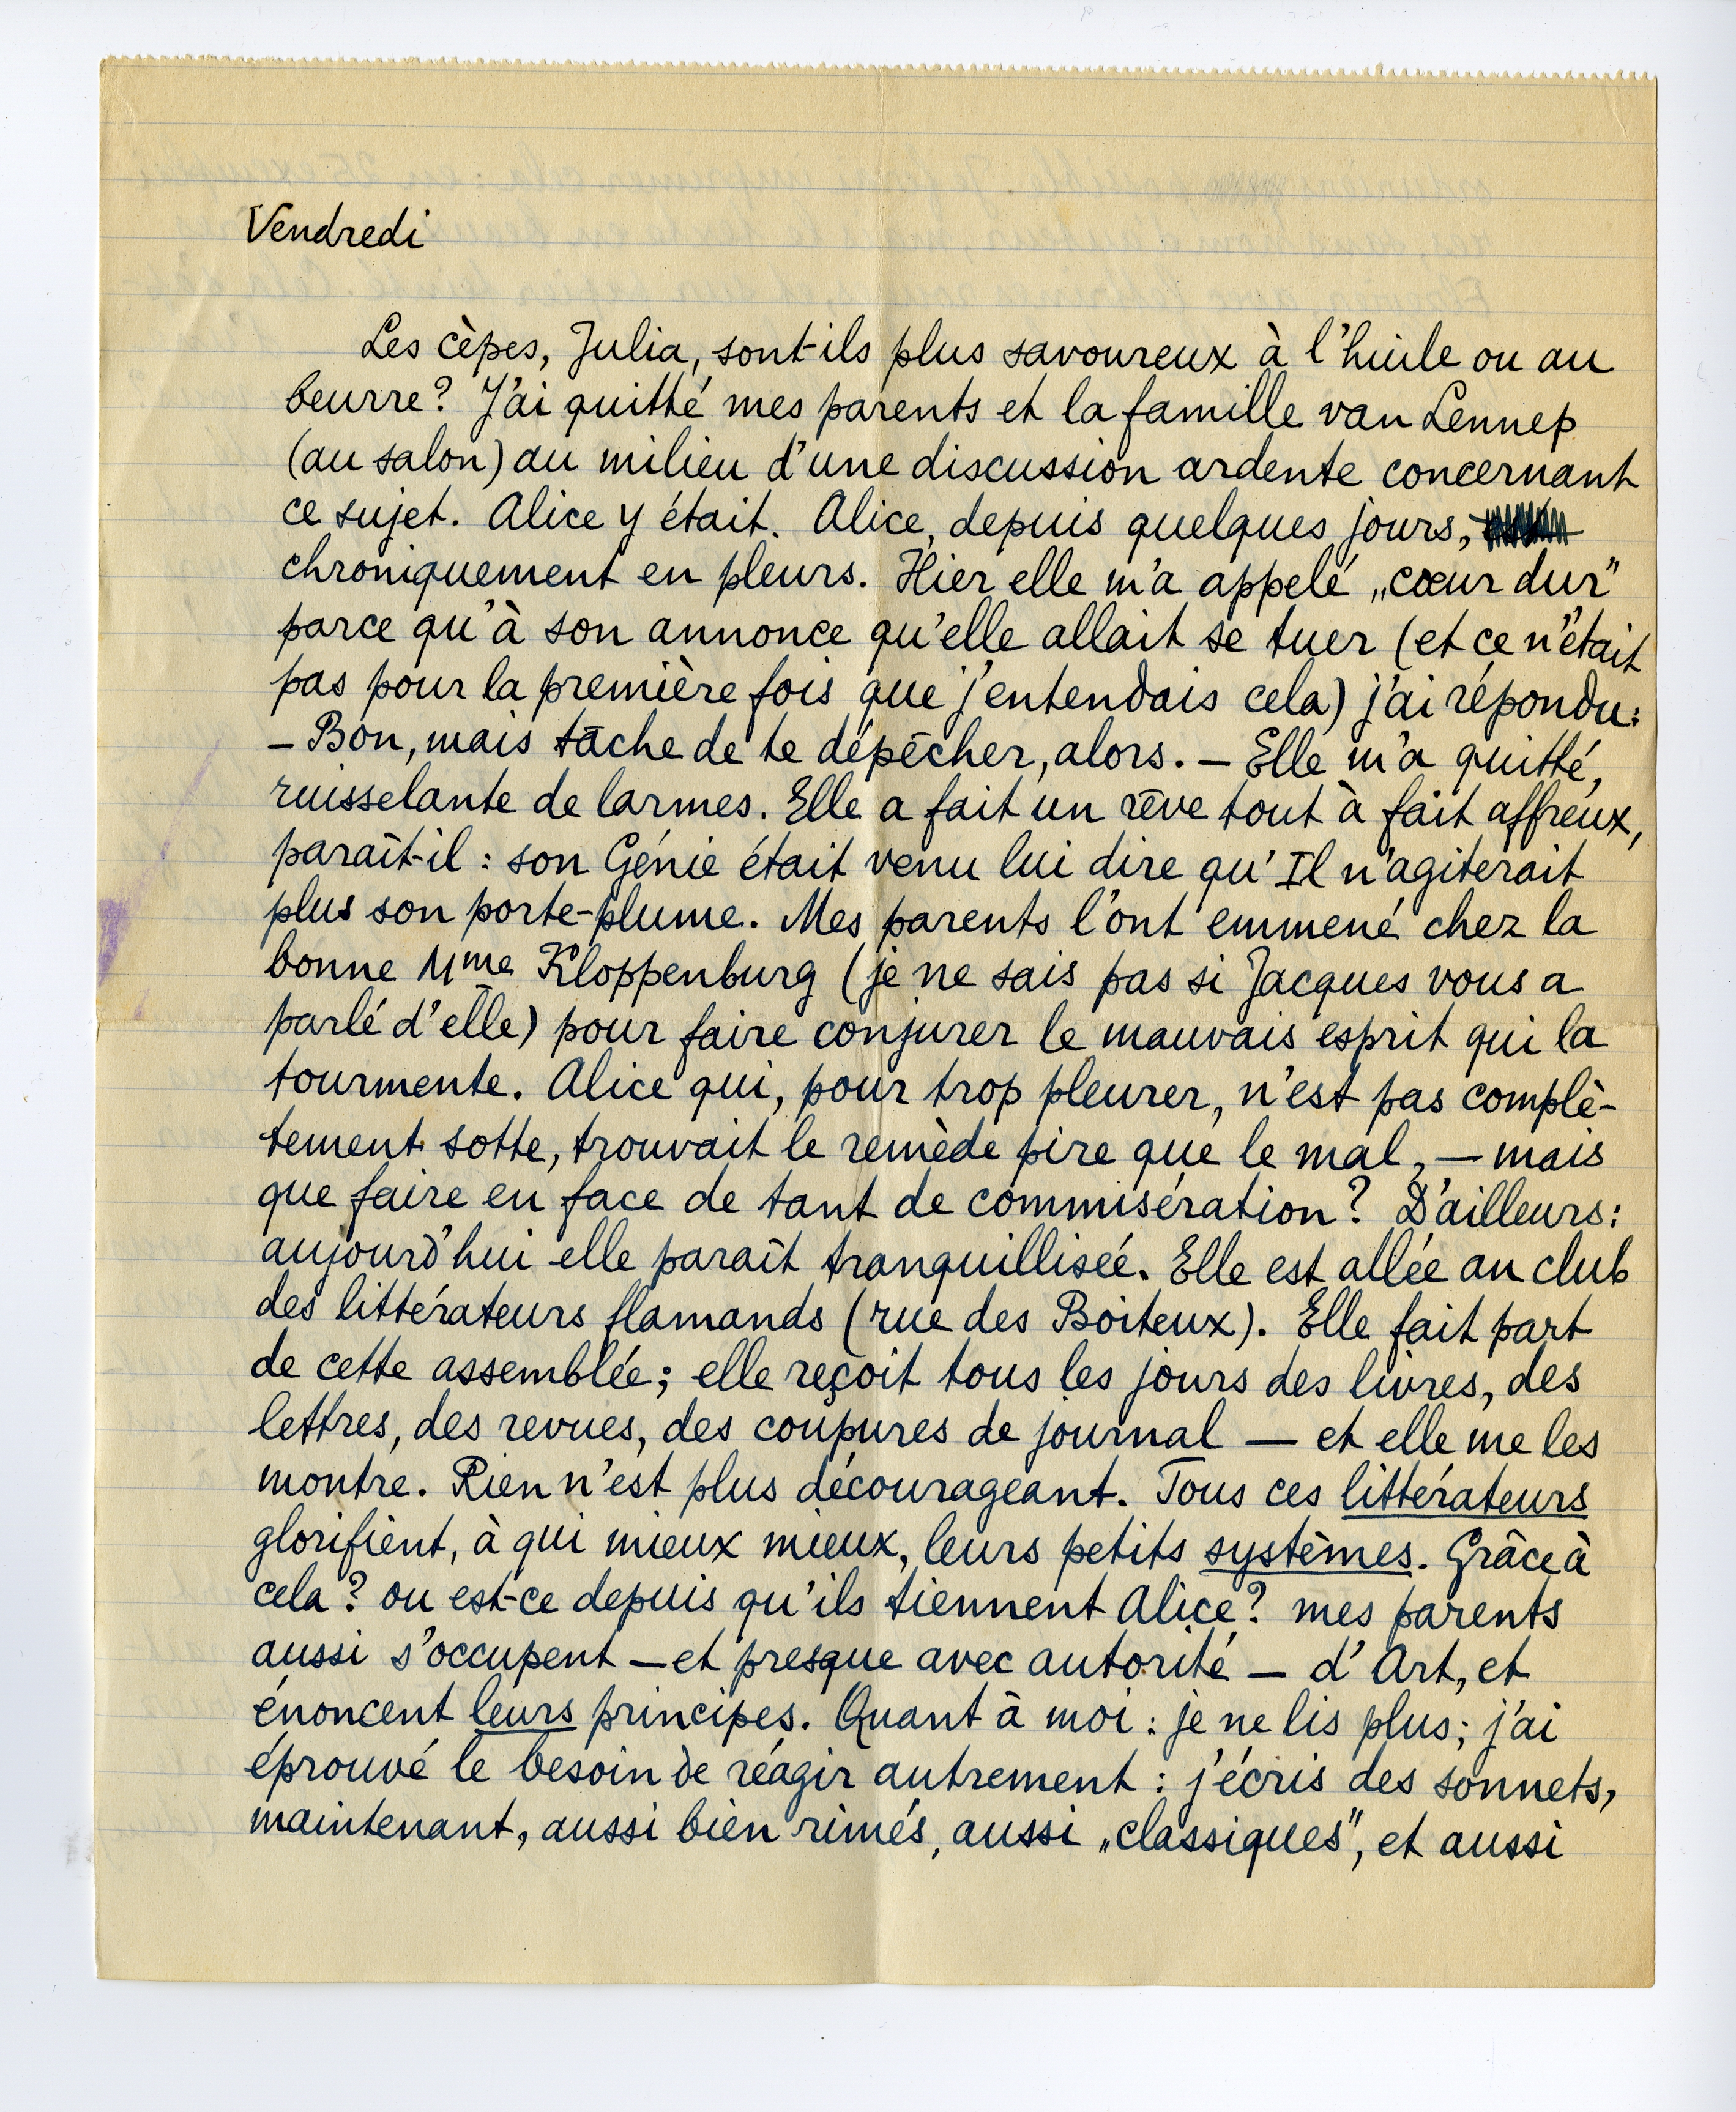 Vendredi
Les cèpes, Julia, sont-ils plus savoureux à l'huile ou au
beurre? J'ai quitté mes parents et la famille van Lennep
(au salon) au milieu d'une discussion ardente concernant
ce sujet. Alice y était. Alice, depuis quelques jours,
chroniquement en pleurs. Hier elle m'a appelé „cœur dur"
parce qu'à son annonce qu'elle allait se tuer (et ce n'était
pas pour la première fois que j'entendais cela) j'ai répondu:
– Bon, mais tâche de te dépêcher, alors. – Elle m'a quitté,
ruisselante de larmes. Elle a fait un rêve tout à fait affreux,
paraît-il : son Génie était venu lui dire qu'Il n'agiterait
plus son porte-plume. Mes parents l'ont emmené chez la
bonne Mme Kloppenburg (je ne sais pas si Jacques vous a
parlé d'elle) pour faire conjurer le mauvais esprit qui la
tourmente. Alice qui, pour trop pleurer, n'est pas complè-
tement sotte, trouvait le remède pire que le mal, — mais
que faire en face de tant de commisération? D'ailleurs:
aujourd'hui elle paraît tranquillisée. Elle est allée au club
des littérateurs flamands (rue des Boiteux). Elle fait part
de cette assemblée; elle reçoit tous les jours des livres, des
lettres, des revues, des coupures de journal — et elle me les
montre. Rien n'est plus décourageant. Tous ces littérateurs
glorifient, à qui mieux mieux, leurs petits systèmes. Grâce à
cela? ou est-ce depuis qu'ils tiennent Alice? mes parents
aussi s'occupent – et presque avec autorité – d'Art, et
énoncent leurs principes. Quant à moi : je ne lis plus; j'ai
éprouvé le besoin de réagir autrement : j'écris des sonnets,
maintenant, aussi bien rimés, aussi „classiques", et aussi